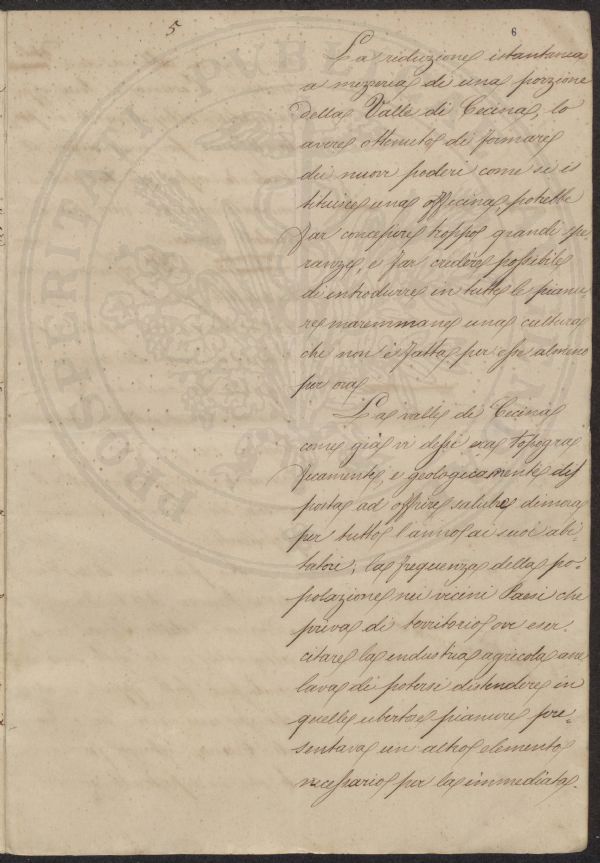 5
6
La riduzione istantanea
a mezzeria di una porzione
della Valle di Cecina, lo
avere ottenuto di formare
dei nuovi poderi come se is
tituire una officina, potrebbe
far concepire troppo grandi spe
ranze, e far credere possibile
di introdurre in tutte le pianu-
re maremmane una cultura
che non è fatta per esse almeno
per ora
La valle di Cecina
come già vi dissi era topogra
ficamente, e geologicamente dis
posta ad offrire salubre dimora
per tutto l'anno ai suoi abi-
tatori; la frequenza della po-
polazione nei vicini Paesi che
priva di territorio ove eser-
citare la industria agricola ane
lava di potersi distendere in
quelle ubertose pianure pre-
sentava un altro elemento
necessario per la immediata
PROSPERITATI PUBL